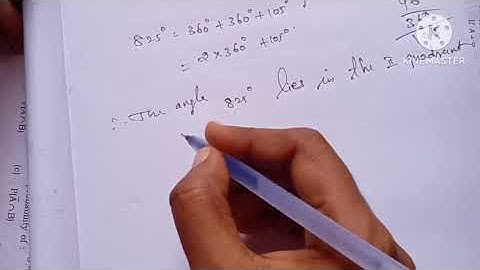 825° = 360° + 360° + 105°
= 2 × 360° + 105°.
∴ The angle 825° lies in the II quadrant
KINEMASTER
P(A∩B)
(c)
P(A∩B)